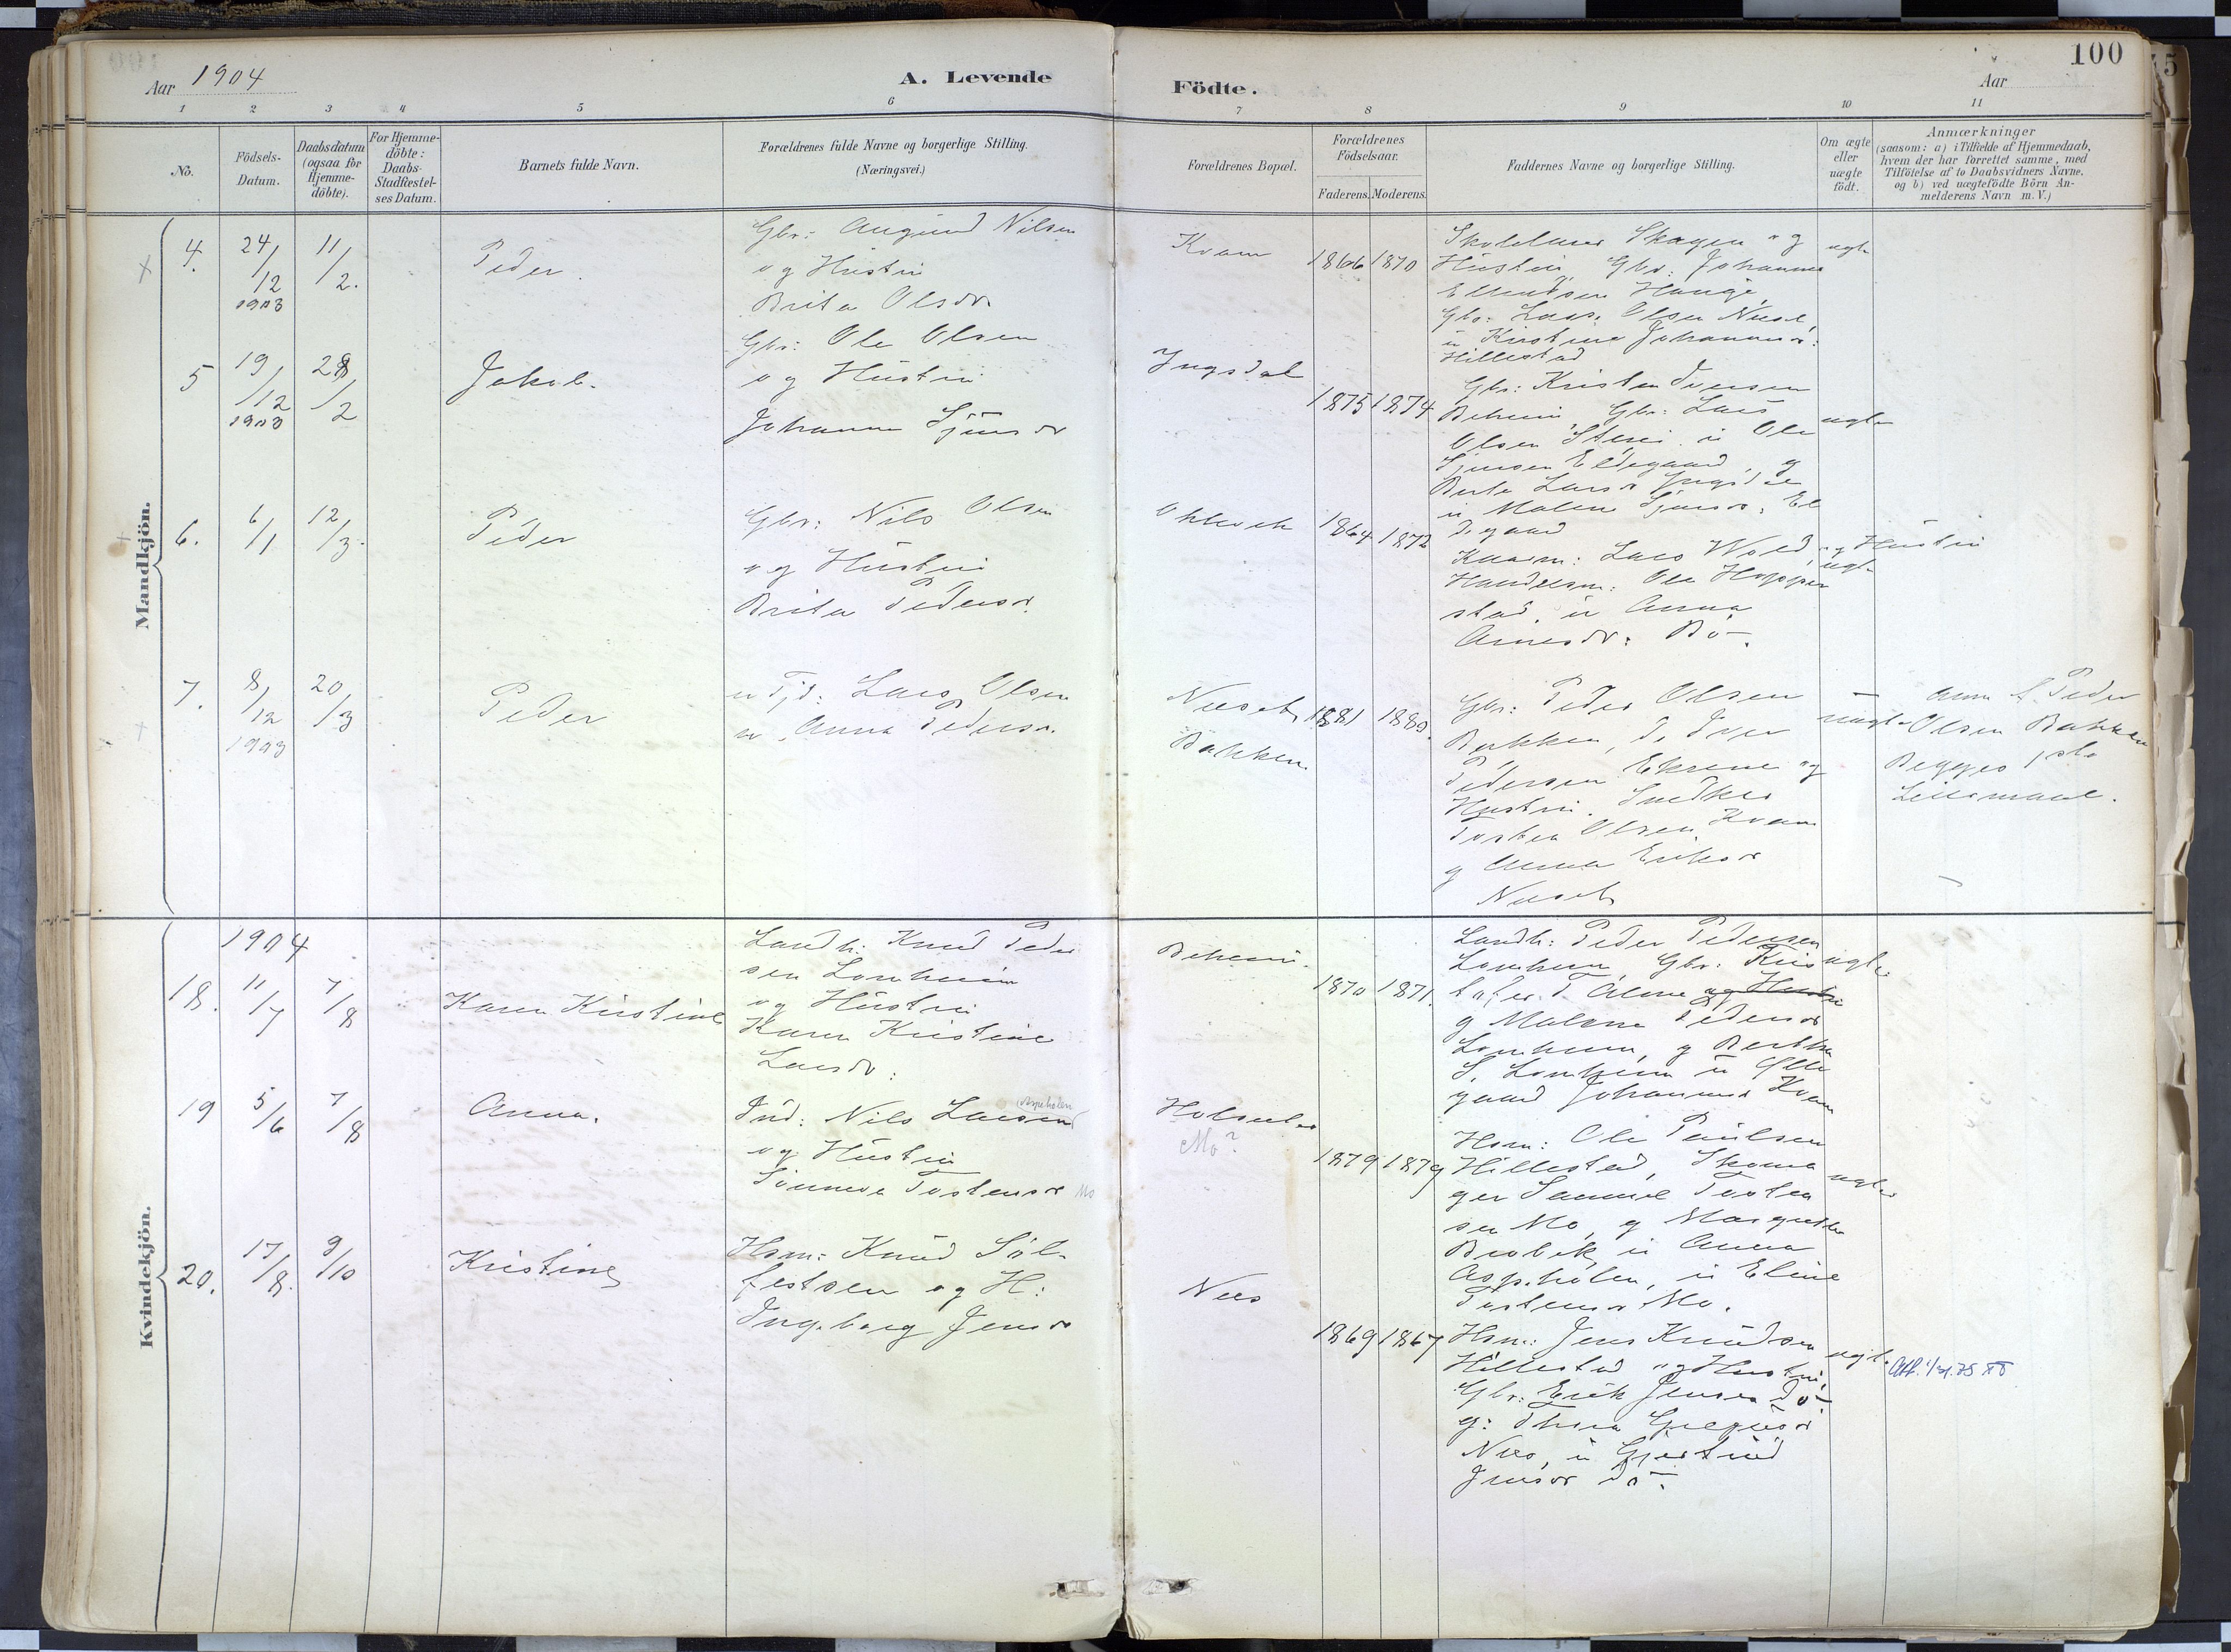 100
Aar 1904
A. Levende
Födte.
Aar
1 2 3 4 5 6 7 8 9 10 11
No.
Födsels-
Datum.
Daabsdatum
(ogsaa for
Hjemme-
döbte).
For Hjemme-
döbte:
Daabs-
Stadfæstel-
ses Datum.
Barnets fulde Navn.
Forældrenes fulde Navne og borgerlige Stilling.
(Næringsvei.)
Forældrenes Bopæl.
Forældrenes
Födselsaar.
Faderens. Moderens.
Faddernes Navne og borgerlige Stilling.
Om ægte
eller
uægte
födt.
Anmærkninger
(saasom: a) i Tilfælde af Hjemmedaab,
hvem der har forrettet samme, med
Tilföielse af to Daabsvidners Navne,
og b) ved uægtefödte Börn An-
melderens Navn m. V.)
Mandkjön.
4.
24/12
1903
11/2.
Peder.
Gbr: Augund Nilsen
og Hustru
Brita Olsdr.
Kvam
1866 1870
Skolelærer Skagen og
Hustru, Gbr: Johannes
Ellendsen Hauge,
Gbr: Lars Olsen Nuse,
u Kirstine Johannesd:
Hillestad
ægte
5
19/12
1903
28/2
Jakob.
Gbr: Ole Olsen
og Hustru
Johanna Sjursdr
Ingsdal
1875 1874
Gbr: Kristen Iversen
Behem Gbr: Lars
Olsen u Ole
Sjursen Eldegaard, og
Larsdr
u Malene Sjursdr. El
degaard
ægte
6.
6/1
12/3.
Peder
Gbr: Nils Olsen
og Hustru
Brita Pedersdr.
1864 1872
Lars Wold, og Hustru
Handelsm: Ole Hopper
stad, u Anna
Arnesdr: Bö.
ægte
7.
8/12
1903
20/3
Peder
u Tjd: Lars Olsen
u Anna Pedersdr.
Bakken.
1881 1880.
Gbr: Peder Olsen
Bakken, d. Iver
Pedersen Ekrene og
Hustru. Snedker
Tosten Olsen Kvam
g Anna Eriksdr
uægte
Peder
Olsen Bakken
Begges 1ste
Leiermaal.
Kvindekjön.
1904
18.
11/7
7/8
Karen Kirstine
Landh: Knud Peder
sen Lomheim
og Hustru
Karen Kristine
Larsdr:
Behem.
1870 1871.
Landh: Peder Pedersen
Lomheim, Gbr: Kris
tofer. T. Alme og Hustru
g Malene Pedersdr
Lomheim, g Berthe
S. Lomheim u Elle
gaard Johannesd Kvam
ægte
19
5/6
7/8
Anna.
Ind: Nils Larsen (Aspeholen)
og Hustru
Sönneva Tostensdr Mo
Mo?
1879 1879
Hsm: Ole Paulsen
Hillestad, Skoma
ger Samuel Tosten
sen Mo, g Margrethe
u Anna
Aspeholen, u Eline
Tostensdr Mo.
ægte
20.
17/8.
9/10
Kristine
Hsm: Knud Söl-
festsen og H:
Ingeborg Jensdr
Nees
1869 1867
Hsm: Jens Knudsen
Hillestad og Hustru,
Gbr: Erik Jensen Dö
g: Thrine
Nees, u Gjertrud
Jensdr dö.
ægte